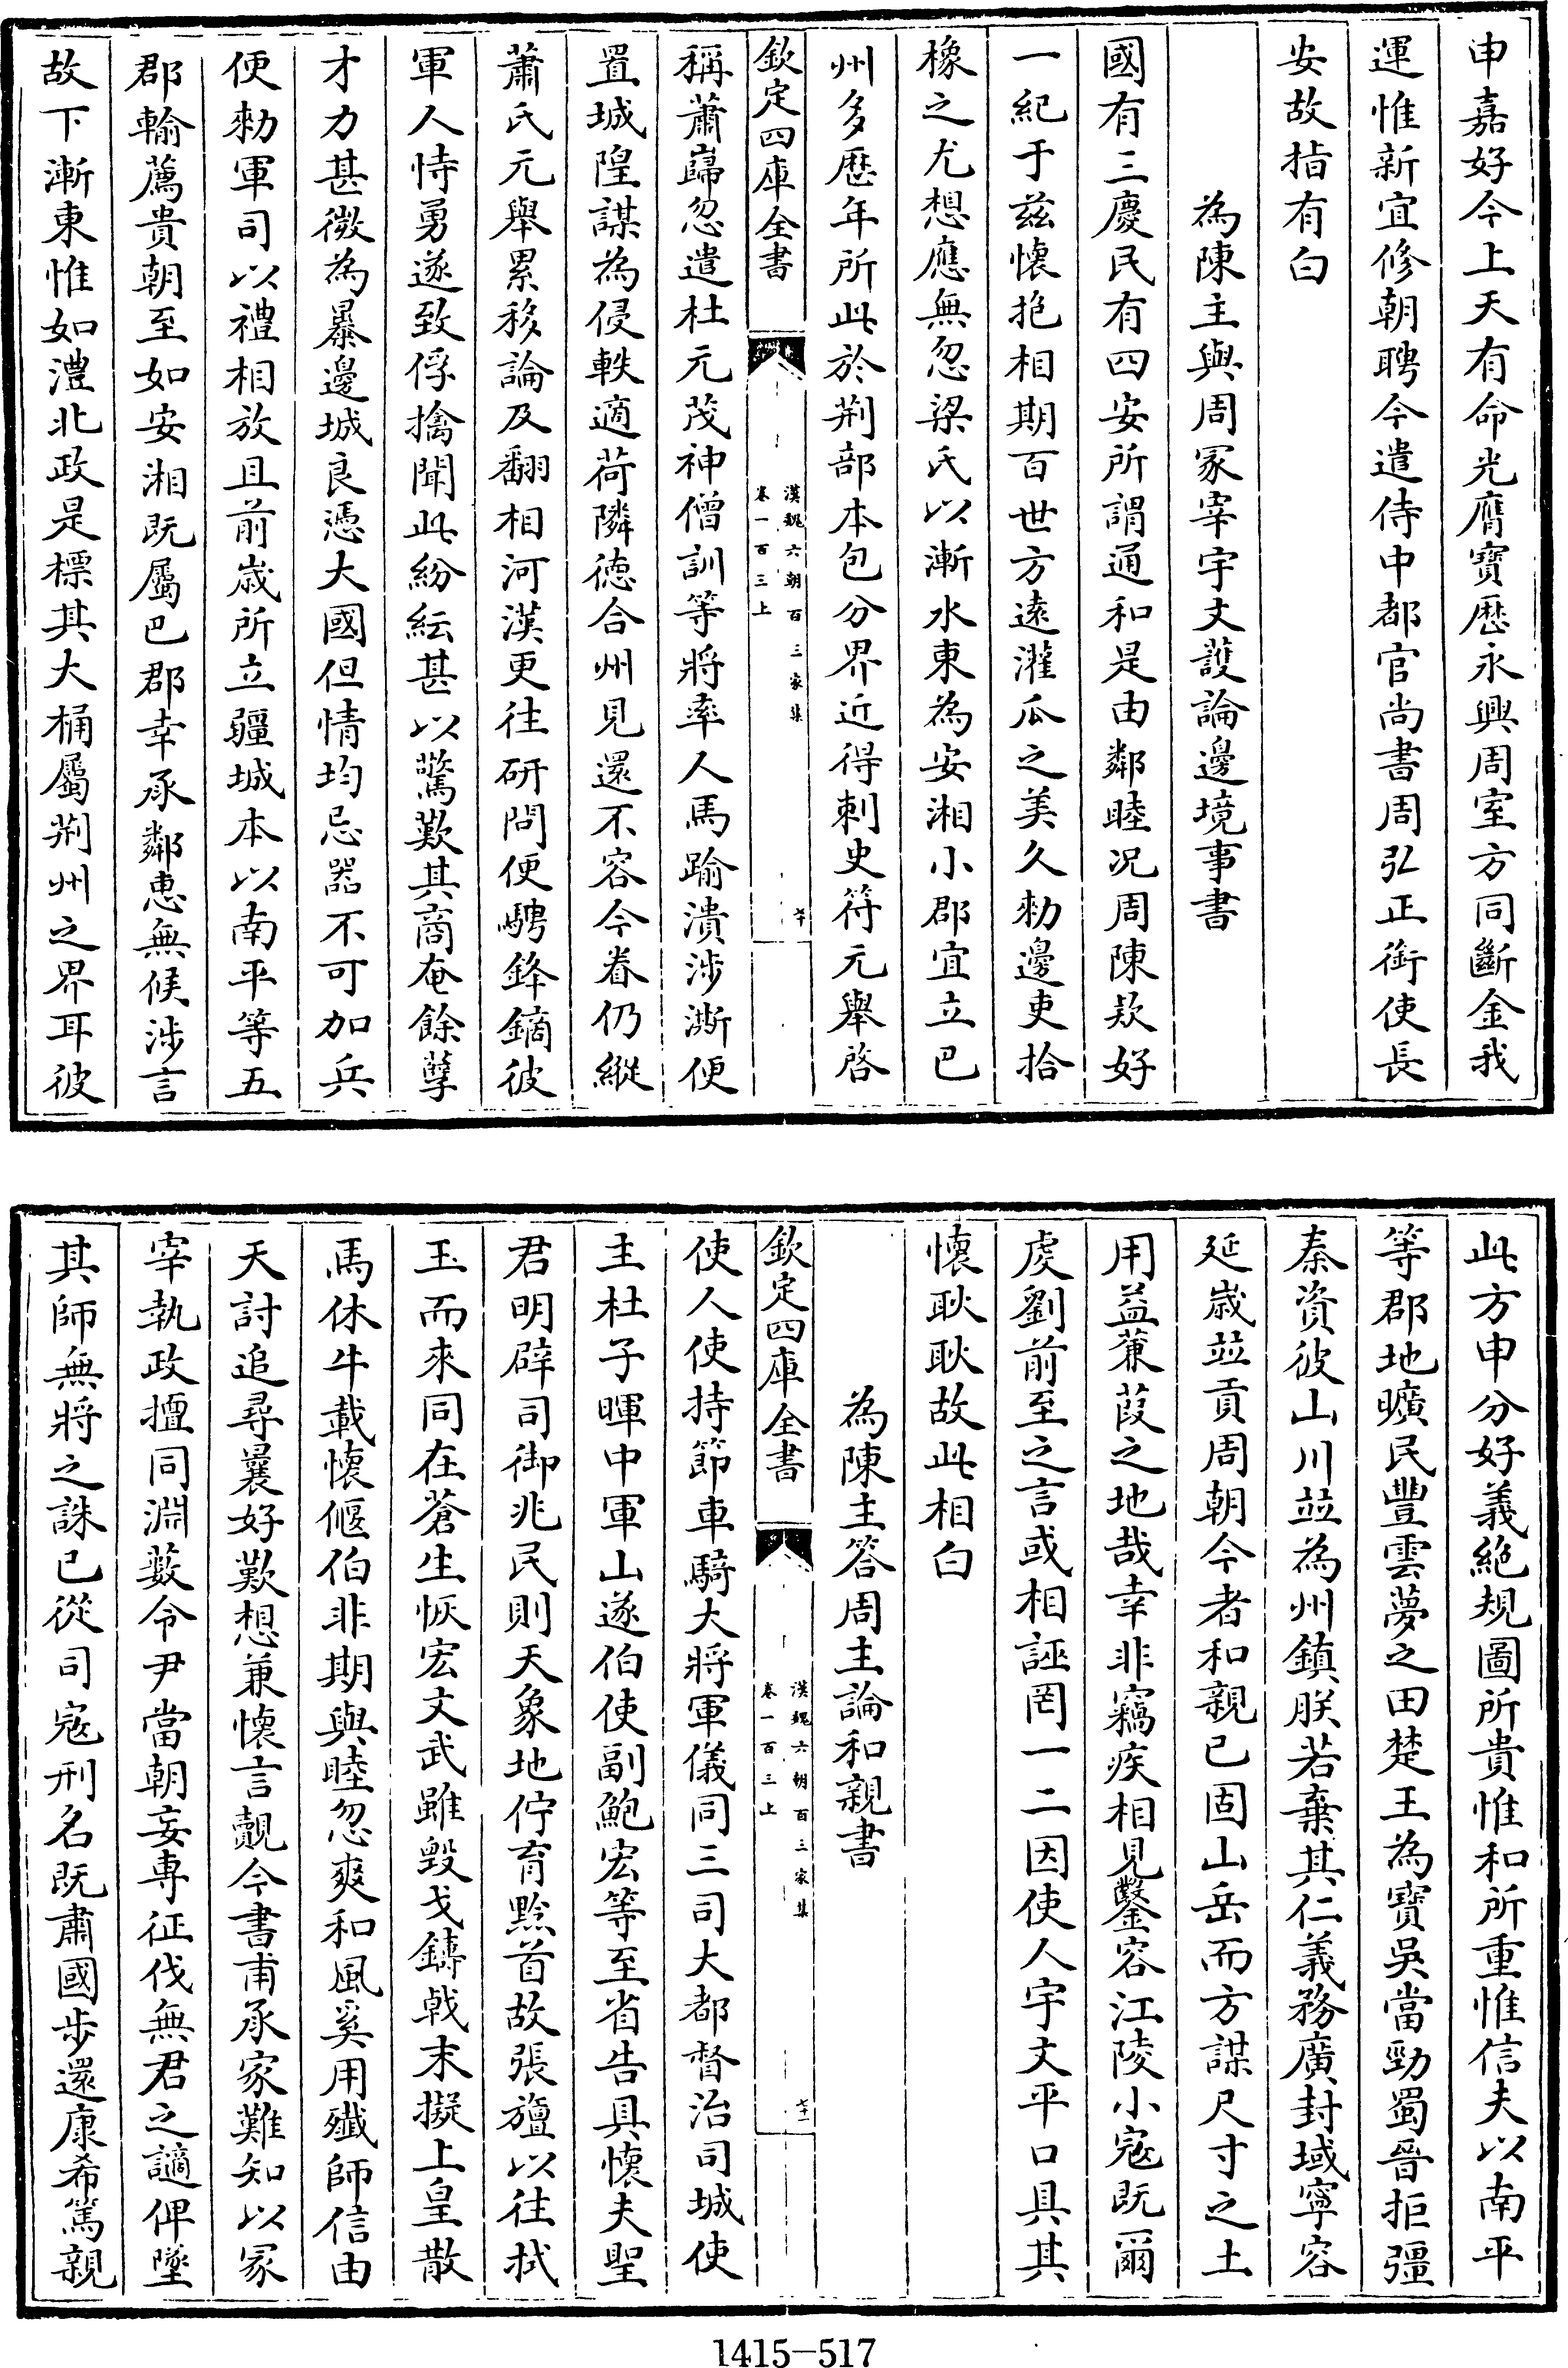 申嘉好今上天有命光膺寶歴永興周室方同斷金我
運惟新宜修朝聘今遣侍中都官尚書周弘正銜使長
安故指有白
為陳主與周冢宰宇文護論邊境事書
國有三慶民有四安所謂通和是由鄰睦况周陳欵好
一紀于兹懷抱相期百世方逺灌瓜之美久勑邊吏拾
橡之尤想應無忽梁氏以漸水東為安湘小郡宜立巴
州多歴年所此於荆部本包分界近得刺史符元舉啓
欽定四庫全書
漢魏六朝百三家集
卷一百三上
稱蕭巋忽遣杜元茂神僧訓等將率人馬踰潰涉澌便
置城隍謀為侵軼適荷隣徳合州見還不容今眷仍縱
蕭氏元舉累移論及翻相河漢更往研問便騁鋒鏑彼
軍人恃勇遂致俘擒聞此紛紜甚以驚歎其商奄餘孽
才力甚微為暴邊城良憑大國但情均忌器不可加兵
便勑軍司以禮相放且前歳所立疆城本以南平等五
郡輸薦貴朝至如安湘既屬巴郡幸承鄰惠無候涉言
故下漸東惟如澧北政是標其大桶屬荆州之界耳彼
此方申分好義絶規圖所貴惟和所重惟信夫以南平
等郡地曠民豐雲夢之田楚王為寶吳當勁蜀晉拒彊
秦資彼山川並為州鎮朕若棄其仁義務廣封域寧容
延歳並貢周朝今者和親已固山岳而方謀尺寸之土
用益蒹葭之地哉幸非竊疾相見鑿容江陵小寇既爾
虔劉前至之言或相誣罔一二因使人宇文平口具其
懷耿耿故此相白
為陳主答周主論和親書
欽定四庫全書
漢魏六朝百三家集
卷一百三上
使人使持節車騎大將軍儀同三司大都督治司城使
主杜子暉中軍山遂伯使副鮑宏等至省告具懷夫聖
君明辟司御兆民則天象地佇育黔首故張旜以往拭
玉而來同在蒼生恢宏文武雖毀戈鑄戟末擬上皇散
馬休牛載懷偃伯非期與睦忽爽和風奚用殲師信由
天討追尋曩好歎想兼懷言觀今書甫承家難知以冢
宰執政擅同淵藪令尹當朝妄專征伐無君之謫俾墜
其師無將之誅已從司寇刑名既肅國步還康希篤親
1415-517